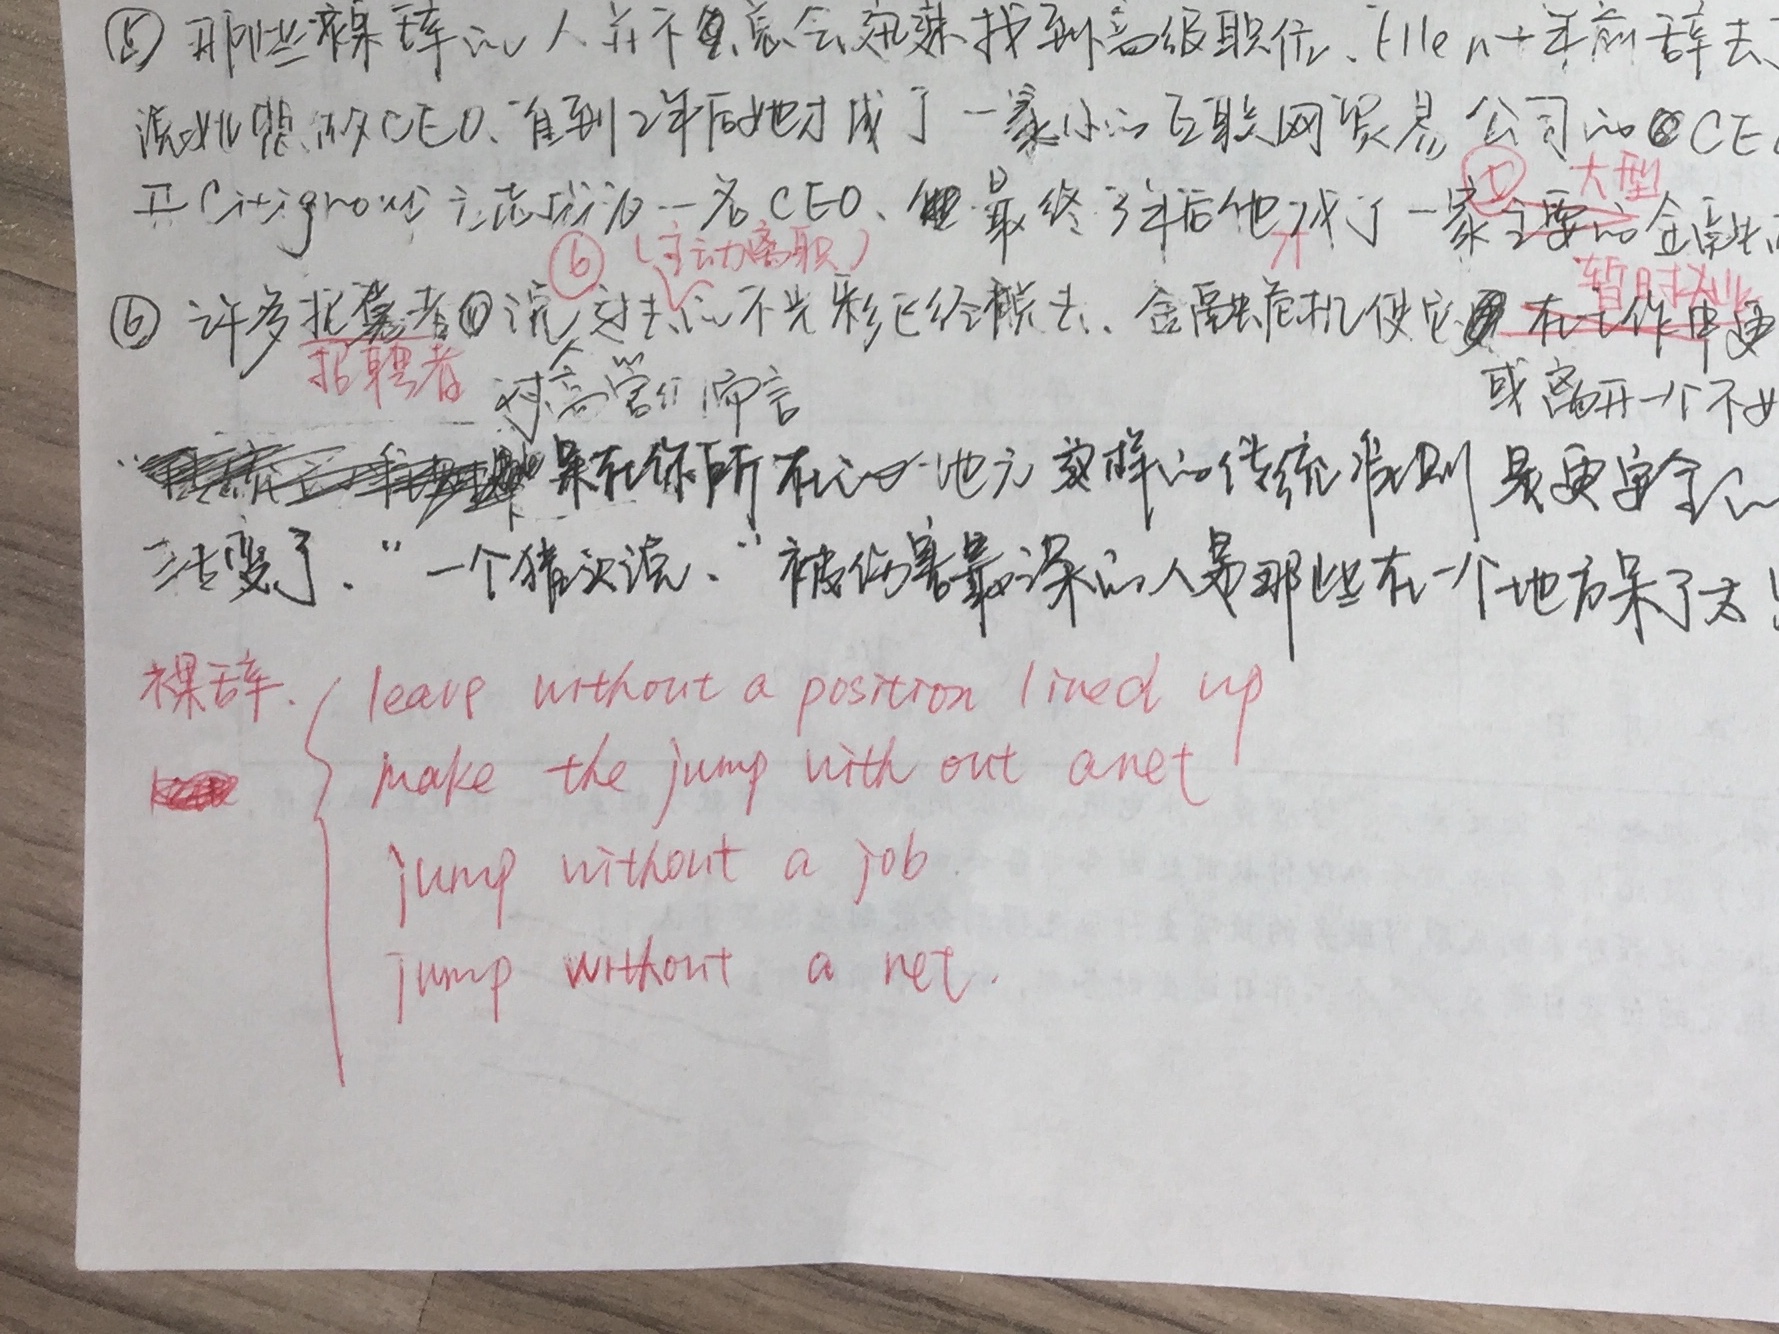 ⑤ 那些裸辞的人并不总会迅速找到高级职位、Ellen十年前辞去
说她想做CEO、直到2年后她才成了一家小的互联网贸易公司的CE
Citigroup 立志成为一名CEO、最终3年后他才成了一家主要的金融
① 大型
⑥ (主动离职)
暂时
⑥ 许多招募者说过去的不光彩已经褪去、金融危机使它在工作中更
招聘者
或离开一个不
对高管们而言
呆在你所在的地方 这样的传统准则 是更安全的
变了."一个猎头说、"被伤害最深的人是那些在一个地方呆了太
裸辞. leave without a position lined up
make the jump without a net
jump without a job
jump without a net.